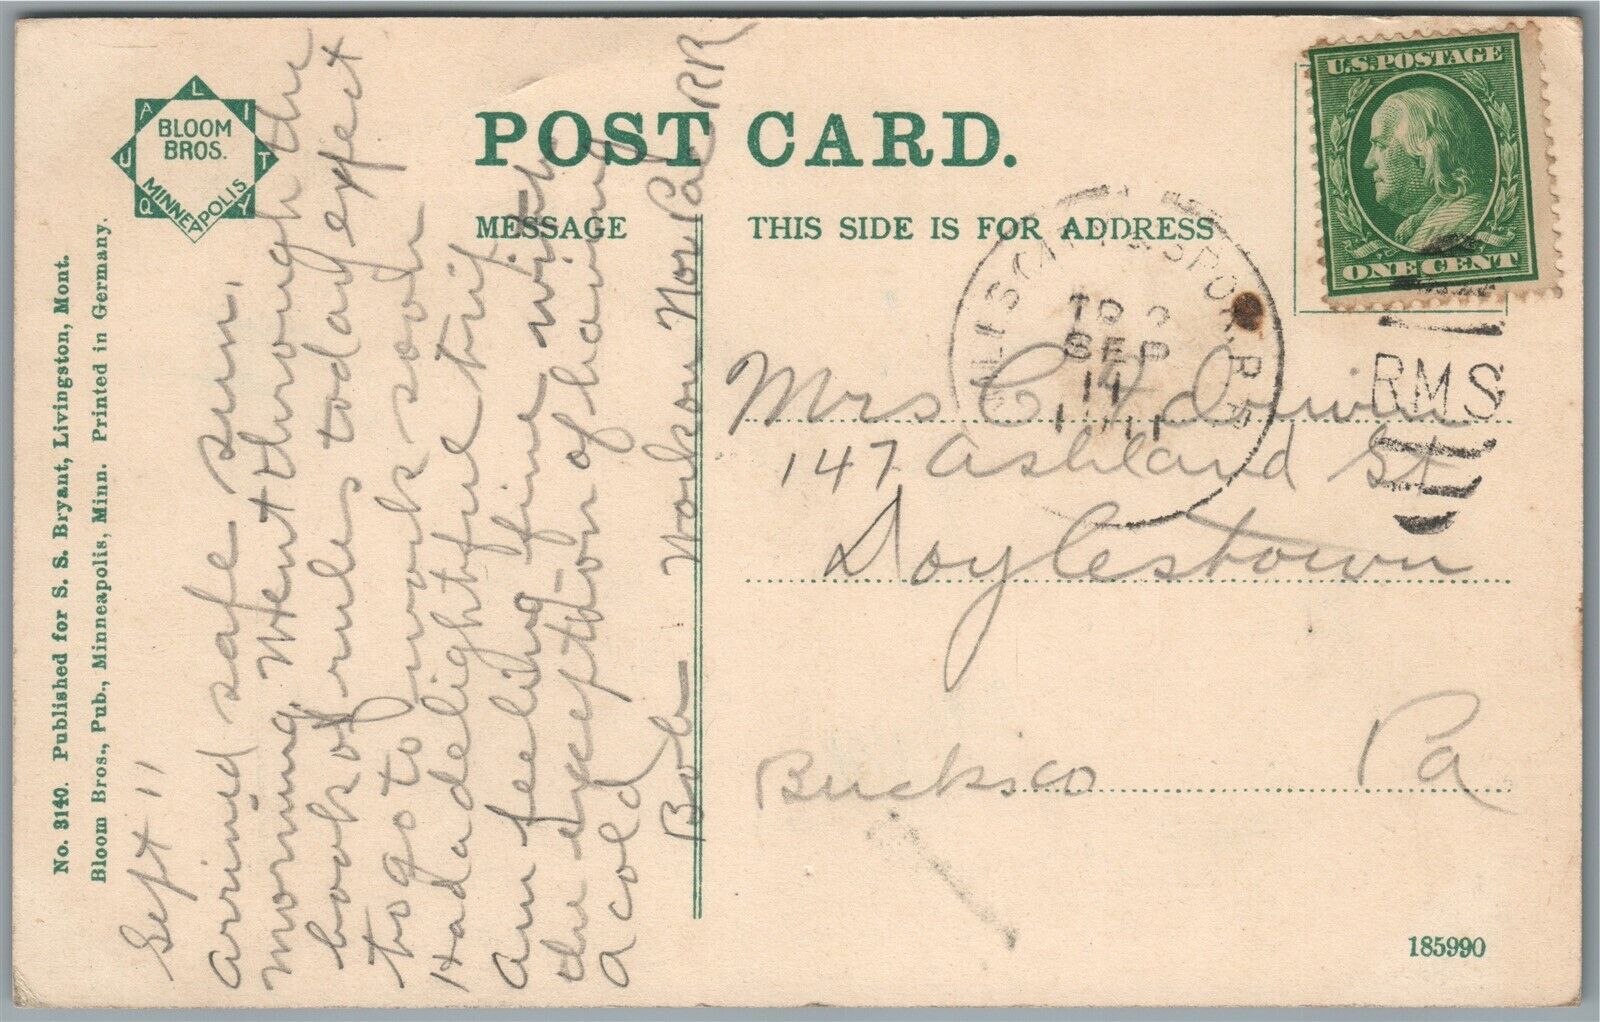 QUALITY
BLOOM
BROS.
MINNEAPOLIS
No. 3140. Published for S. S. Bryant, Livingston, Mont.
Bloom Bros., Pub., Minneapolis, Minn. Printed in Germany.
POST CARD.
MESSAGE
THIS SIDE IS FOR ADDRESS
Sept 11
Arrived safe Sun.
morning. Went through the
book of rules today expect
to go to work soon
Had a delightful trip
Am feeling fine with
the exception of having
a cold
Bob Work on Nor Pac RR
U.S. POSTAGE
ONE CENT
SPOR. R.R.
TR 2
SEP
11
1911
RMS
Mrs C
147 Ashland St
Doylestown
Bucks co Pa
185990